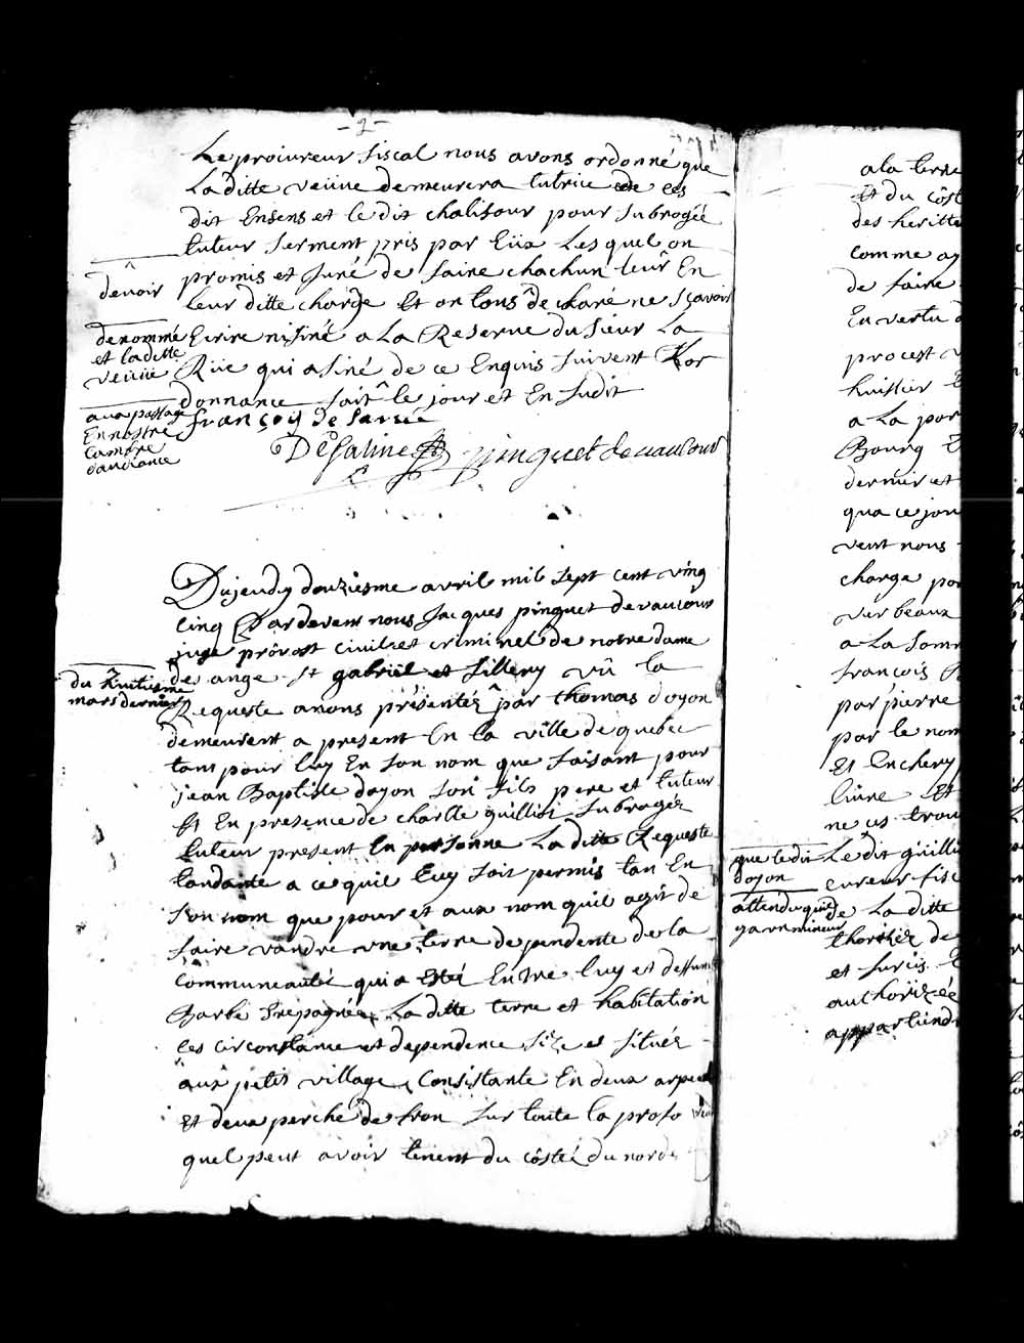 -2-
Le procureur fiscal nous avons ordonné que
La ditte veüve demeurera tutrice de ces
dit Enfens et le dit chalifour pour subrogée
tuteur serment pris par Eüx Lesquel on
promis et Juré de faire chachun leur En
devoir
leur ditte charge Et on tous declaré ne sçavoir
denommé
et la ditte
veüve
Ecrire ni siné a La Reserve du sieur La
Rüe qui a siné de ce Enquis suivent Lor
donnance fait le jour et En sudit
aux passage
En nostre
Cambre
daudiance
françoy de
DeSaline pinguet de vaucour
Du jeudy douziesme avril mil sept cent ving
cinq Par devent nous Jacques pinguet de vaucour
juge prövost civil et criminel de nostre dame
de ange st gabriel et sillery vû la
du huitiesme
mars dernier
Requeste a nous présentéz par thomas doyon
demeurent a present En la ville de quebec
tant pour luy En son nom que faisant pour
jean Baptiste doyon son fils pere et tuteur
Et En presence de charlle guilliot subrogéz
tuteur present En personne La ditte Requeste
tandante a ce quil Luy soit permis tan En
son nom que pour et aux nom quil agit de
faire vandre une terre dependente de la
Communeauté qui a Esté Entre luy et deffunt
Barbe Trepagnée La ditte terre et habitation
ces circonstance et dependence size et situéz
aux petit village Consistante En deux arpent
Et deux perche de fron sur toute la profo
quel peut avoir tenent du côsté du nord
a la terre
Et du côst
des heritte
comme a
de faire
En vertu d
procest v
huissier
a La por
Bourg
dernier et
qua ce jour
vent nous
charge po
ver beaux
a La Som
francois
par pierre
par le nom
Et Enchery
livre Et
ne cs trou
que le dit
doyon
Le dit guilli
cureur fisc
attendu quil
y a un mineur
de La ditte
thorizéz de
et surcis
authorizéé
appartiend